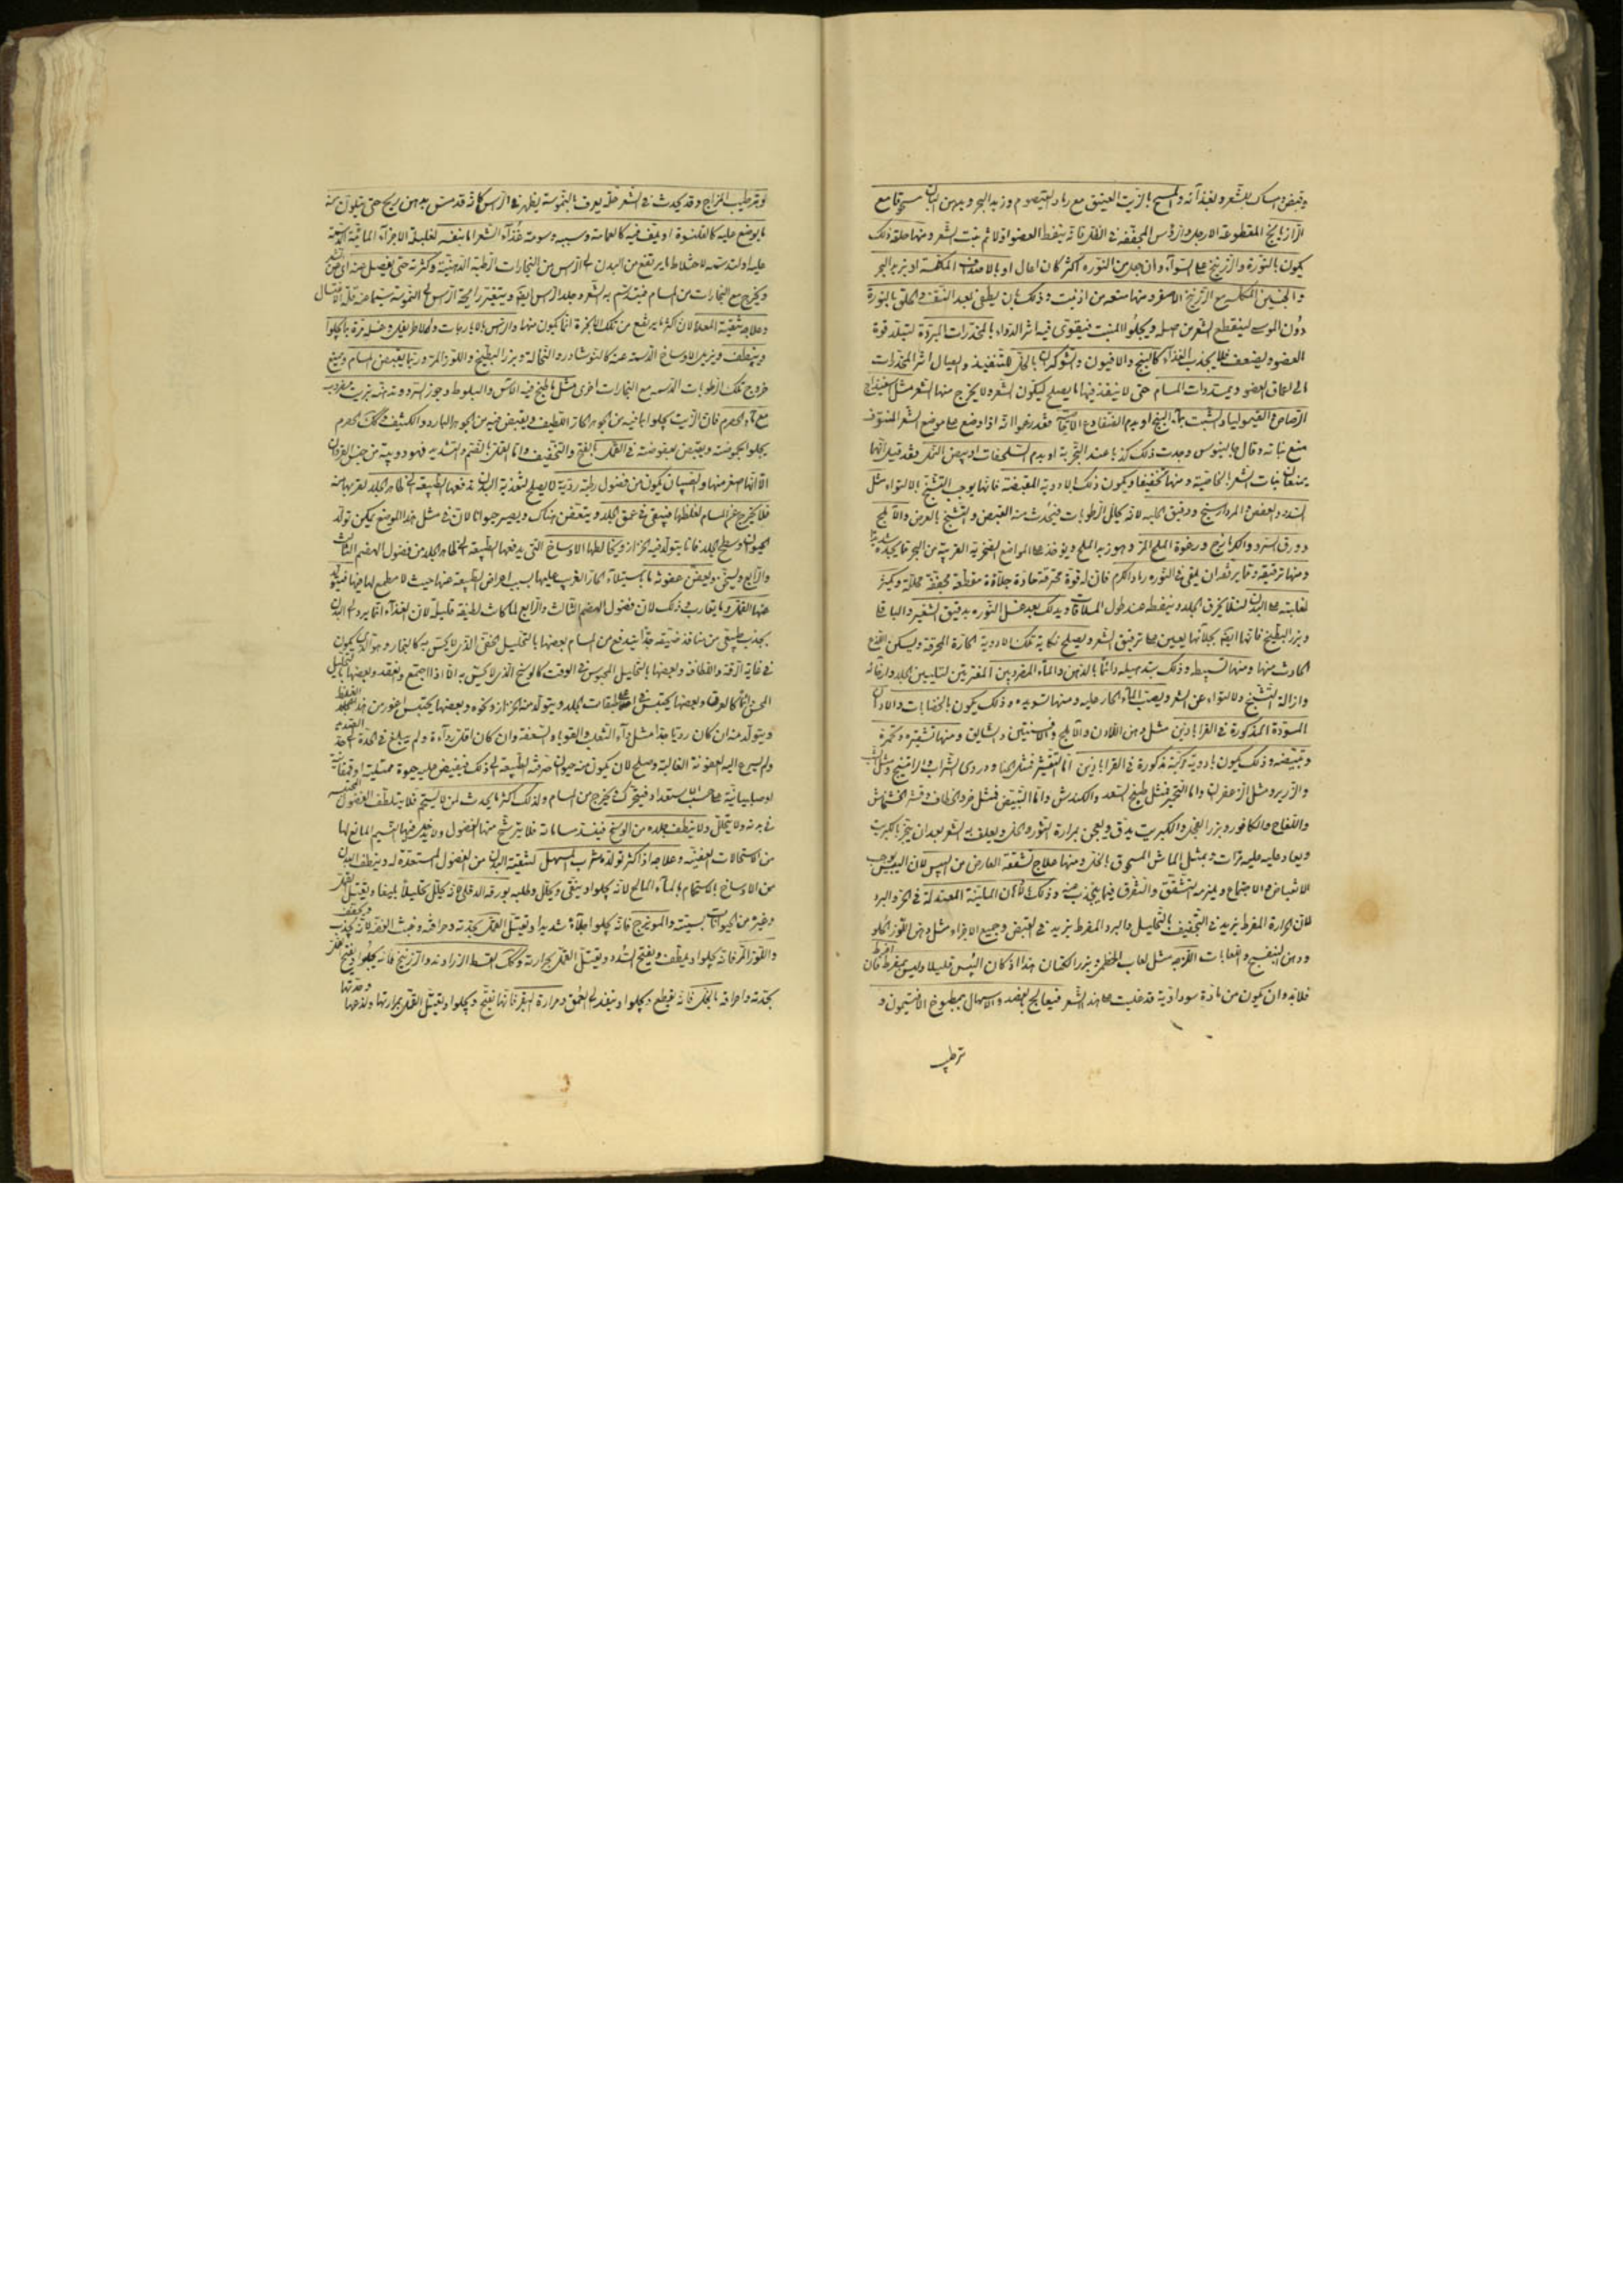 وقبض وامساك للشعر ولغذائه والمسح بالزيت العتيق مع رماد القيصوم وزبد البحر وبدهن البان مسحوقا مع
الذراريح المقطوعة الارجل والرؤس المجففة في الظل فانه ينفط العضو اولا ثم ينبت الشعر ومنها حلقه وذلك
يكون بالنورة والزرنيخ على السواء وان جعل من النورة اكثر كان اعمل او بالاصداف المكلسة او بزبد البحر
والجبسين المكلس مع الزرنيخ الاصفر ومنها منعه من ان ينبت وذلك بان يطلى بعد النتف والحلق بالنورة
دون الموسى لينقطع الشعر من اصله ويجلو المنبت فيقوى فيه اثر الدواء بالمخدرات المبردة لتبلد قوة
العضو ويضعف فلا يجذب الغذاء كالبنج والافيون والشوكران بالخل للتنفيذ وايصال اثر المخدرات
الى اعماق العضو وبمسددات المسام حتى لا ينفذ فيها ما يصلح ليكون الشعر ولا يخرج منها الشعر مثل اسفيداج
الرصاص والقيموليا والشب بماء البنج او بدم الضفادع الاجامية فقد زعموا انه اذا وضع على موضع الشعر المنتوف
منع نباته وقال جالينوس وجدت ذلك كذبا عند التجربة او بدم السلحفات او ببيض النمل فقد قيل انها
يمنعان نبات الشعر بالخاصية ومنها تجعيده ويكون ذلك بالادوية المقبضة فانها يوجب التشنج والالتواء مثل
السدر والعفص والمرداسنج ودقيق الحلبة لانه يحلل الرطوبات فيحدث منه القبض والتشنج بالعرض والاملج
وورق السرو والكزمازج ورغوة الملح المر وهو زبد الملح ويوجد على المواضع الصخرية القريبة من البحر
ومنها ترقيقه ومما يرققه ان يلقى في النورة رماد الكرم فان له قوة محرقة حادة جلاءة مقطعة مجففة محللة ويكثر
لغلبته على البدن لئلا يحرق الجلد وينفطه عند طول الملاقات ويدلك بعد غسل النورة بدقيق الشعير والباقلا
وبزر البطيخ فانها ايضا بجلائها يعين على ترقيق الشعر ويصلح نكاية تلك الادوية الحارة المحرقة ويسكن اللذع
الحادث منها ومنها تسبيطه وذلك بتدهينه دائما بالدهن والماء المضروبين المفترين لتليين الجلد وارخائه
وازالة التشنج والالتواء عن الشعر ويصب الماء الحار عليه ومنها تسويده وذلك يكون بالخضابات والادهان
المسودة المذكورة في القرابادين مثل دهن اللادن والاملج والافسنتين والشقايق ومنها تشقيره وتحميره
وتبييضه وذلك يكون بادوية مركبة مذكورة في القرابادين اما التشقير فمثل الحناء ودردى الشراب والراتينج
والزرير ومثل الزعفران واما التحمير فمثل طبيخ السعد والكندش واما التبييض فمثل خرؤ الخطاف وقشر الخشخاش
واللفاح والكافور وبزر الفجل والكبريت يدق ويعجن بمرارة الثور والخل ويغلف به الشعر بعد ان يبخر بالكبريت
ويعاد عليه مرات وبمثل الماش المسحوق بالخل ومنها علاج تشققه العارض من اليبس لان اليبس يوجب
الانقباض والاجتماع ويلزمه التشقق والتفرق فيما ينجذب عنه وذلك بالادهان الملينة المعتدلة في الحر والبرد
لان الحرارة المفرط يزيد في التجفيف بالتحليل والبرد المفرط يزيد في القبض وجمع الاجزاء مثل دهن اللوز الحلو
ودهن البنفسج واللعابات اللزجة مثل لعاب الخطمى وبزر الكتان هذا اذا كان اليبس قليلا وليس بمفرط فان افرط
فلا بد وان يكون من مادة سوداوية قد غلبت على هذا الشعر فيعالج بالفصد والاسهال بمطبوخ الافتيمون و
ترطيب
لو ترطيب المزاج وقد يحدث في الشعر حالة يعرف بالنموسة يظهر في الراس كانه قد مس بدهن بزيج حتى يتلون منه
ما يوضع عليه كالقلنسوة او يلف فيه كالعمامة وسببه دسومة غذاء الشعر اما بنفسه لغلبة الاجزاء المائية الدسمة
عليه او لدسومة الاختلاط ما يرتفع من البدن الى الراس من البخارات الرطبة الدهنية وكثرته حتى يفصل منه
ويخرج مع البخارات من المسام فيتدسم به الشعر وجلد الراس ايضا ويتغير رائحة الراس الى النموسة سيما عند قلة الاغتسال
وعلاجه تنقية المعدة لان اكثر ما يرتفع من تلك الابخرة انما يكون منها والراس بالايارجات والاطريفل وغسله مرة بما يجلو
وينظف ويزيل الاوساخ الدسمة عنه كالنوشادر والنخالة وبزر البطيخ واللوز المر وربما يقبض المسام ويمنع
خروج تلك الرطوبات الدسمة مع البخارات اخرى مثل ما طبخ فيه الاس والبلوط وجوز السرو وتدهينه بزيت مضروب
مع ماء الحصرم فان الزيت يجلو بما فيه من الجوهر الحار اللطيف ويقبض بما فيه من الجوهر البارد والكثيف وكذلك الحصرم
يجلو بحموضته ويقبض بعفوصته في القمل بالفتح والتخفيف واما القمل بالضم والتشديد فهو دويبة من جنس القردان
الا انها اصغر منها والصيبان يكون من فضول رطبة ردية لا يصلح لتغذية البدن تدفعها الطبيعة الى ظاهر الجلد لقربها منه
فلا يخرج عن المسام لغلظها فيبقى في عمق الجلد ويتعفن هناك ويصير حيوانا لان في مثل هذا الموضع يمكن تولد
الحيوان وسطح الجلد فانما يتولد فيه الحزاز ويخالطها الاوساخ التي يدفعها الطبيعة الى ظاهر الجلد من فضول الهضم الثالث
والرابع ويسخن ويعفن عفونة ما باستيلاء الحار الغريب عليها بسبب اعراض الطبيعة عنها حيث لا مطمع لها فيها فيتولد
عنها القمل وما يقارب ذلك لان فضول الهضم الثالث والرابع لما كانت لطيفة قليلة لان الغذاء انما يرد الى البدن
بجذب طبيعي من منافذ ضيقة جدا يندفع من المسام بعضها بالتحليل الخفي الذي لا يحس به كالبخار وهو الذي يكون
في غاية الرقة واللطافة وبعضها بالتحليل المحسوس في الوقت كالوسخ الذي لا يحس به الا اذا اجتمع وانعقد وبعضها بالتحليل
المحسوس دائما كالعرق وبعضها يحتبس في اعلى طبقات الجلد ويتولد منه الحزاز ونحوه وبعضها يحتبس اغور من هذا لغلظه
ويتولد منه ان كان رديا جدا مثل داء الثعلب والقوباء والسعفة وان كان اقل رداءة ولم يبلغ في الحدة الى حد
ولم يسرع اليه العفونة الغالبة وصلح لان يكون منه حيوان صرفه الطبيعة الى ذلك فيفيض عليه حيوة قملية او قمقامية
او صيبانية على حسب الاستعداد فيتحرك ويخرج من المسام ولذلك اكثر ما يحدث لمن لا يستحم فلا يتلطف الفضول المحتبسة
في بدنه ولا يتحلل ولا ينظف جلده من الوسخ فينسد مساماته فلا يترشح منها الفضول ولا يدخل فيها النسيم المانع لها
من الاستحالات العفنية وعلاجه اذا كثر تولده شرب المسهل لتنقية البدن من الفضول المستعدة له وينظف البدن
من الاوساخ بالاستحمام بالماء المالح لانه يجلو وينقى ويحلل وطليه بورقه الدفلى فانه يحلل تحليلا بليغا ويقتل القمل
وغيره من الحيوانات بسميته والمويزج فانه يجلو جلاء شديدا ويقتل القمل بحدته وحرافته وخبث الفضة لانه يجذب ويجفف
واللوز المر فانه يجلو وينظف ويفتح السدد ويقتل القمل بمرارته وكذلك القسط والزراوند والزرنيخ فانه يجلو ويقتل القمل
بحدته واحراقه بالخل فانه يقطع ويجلو وينفذ الى العمق ومرارة البقر فانها تفتح ويجلو ويقتل القمل بمرارتها ولذعها وحدتها